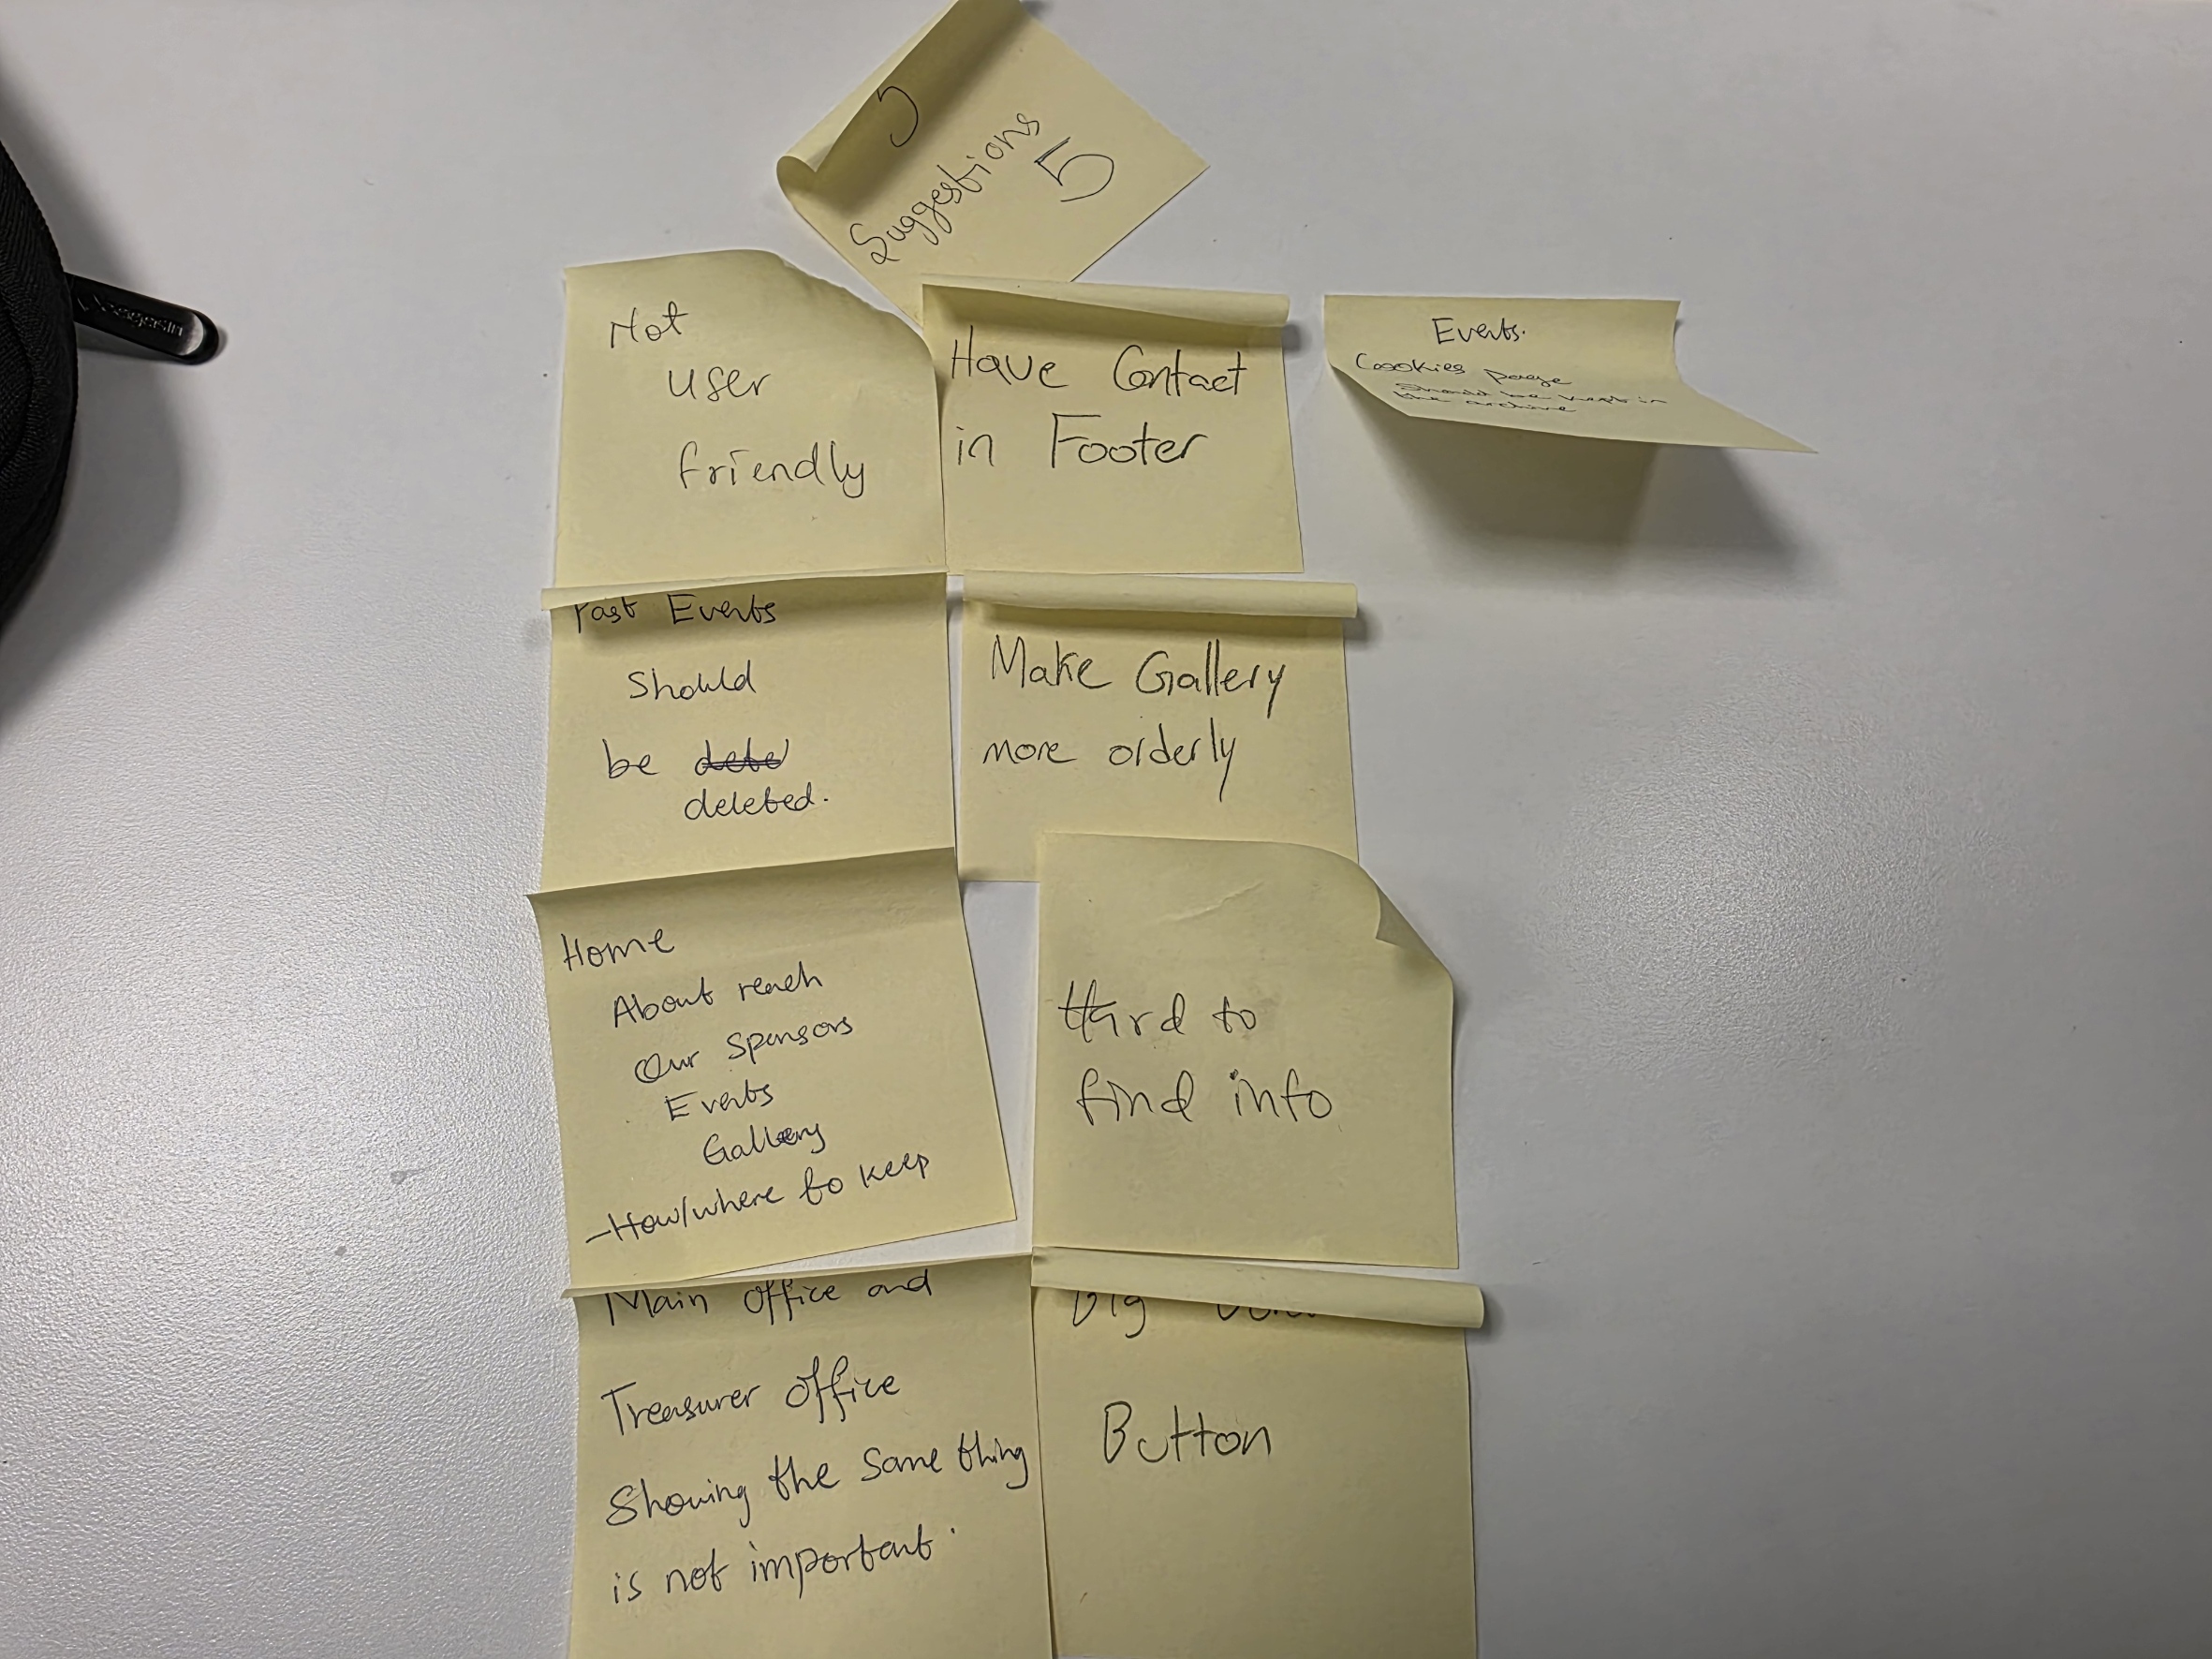 5
Suggestions
5
Not
user
friendly
Have Contact
in Footer
Events.
Cookies page
should be kept in
the archive
Past Events
Should
be
deleted.
Make Gallery
more orderly
Home
About reach
Our Sponsors
Events
Gallery
—How/where to keep
Hard to
find info
Main office and
Treasurer office
Showing the same thing
is not important.
Big
Button